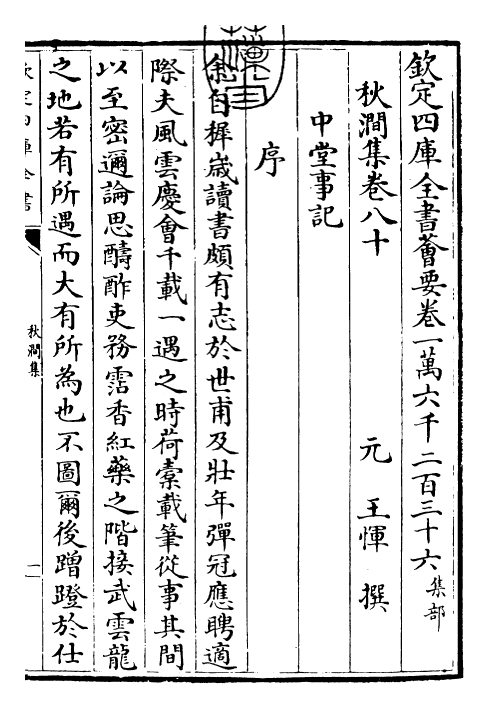 欽定四庫全書薈要卷一萬六千二百三十六 集部
秋澗集卷八十 元 王惲 撰
中堂事記
序
余自穉歲讀書頗有志於世甫及壯年彈冠應聘適
際夫風雲慶會千載一遇之時荷橐載筆從事其間
以至密邇論思酬酢吏務霑香紅藥之階接武雲龍
之地若有所遇而大有所為也不圖爾後蹭蹬於仕
欽定四庫全書
秋澗集
一